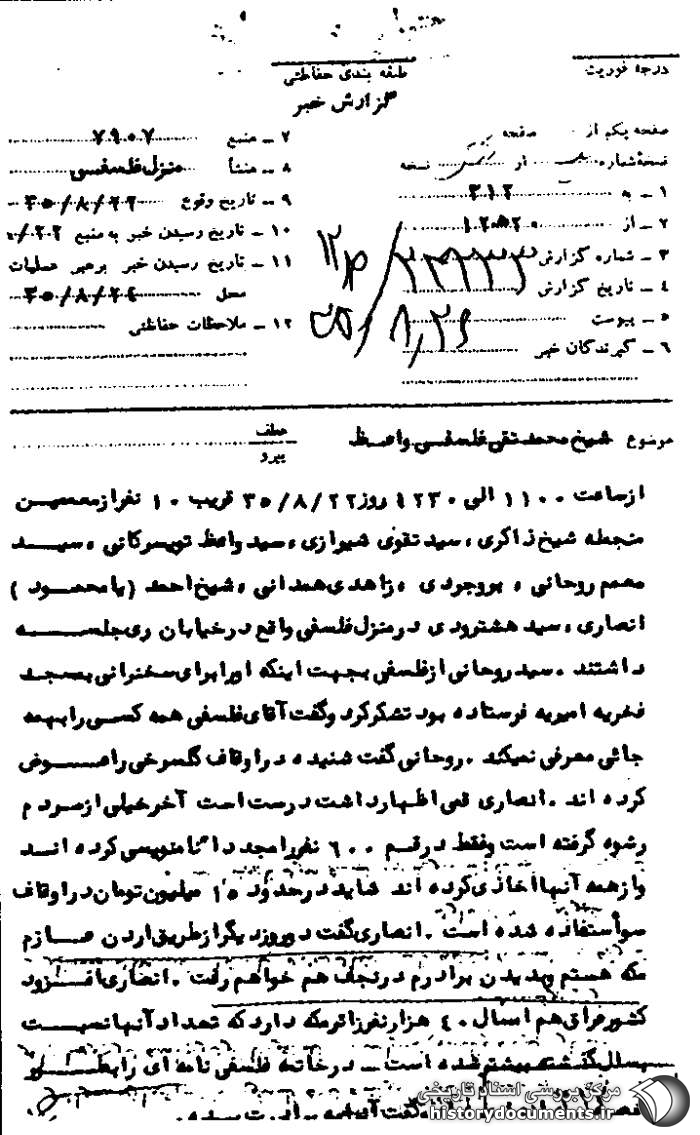 طبقه بندی حفاظتی
درجه فوریت
گزارش خبر
صفحه یکم از صفحه
نسخهٔ شماره از نسخه
۱ ـ به ۳۱۲
۲ ـ از
۳ ـ شماره گزارش
۴ ـ تاریخ گزارش
۵ ـ پیوست
۶ ـ گیرندگان خبر
۷ ـ منبع ۷۹۰۷
۸ ـ منشأ منزل فلسفی
۹ ـ تاریخ وقوع ۳۵/۸/۲۲
۱۰ ـ تاریخ رسیدن خبر به منبع
۱۱ ـ تاریخ رسیدن خبر برهبر عملیات
محل ۳۵/۸/۲۴
۱۲ ـ ملاحظات حفاظتی
موضوع شیخ محمد تقی فلسفی واعظ
عطف
پیرو
ازساعت ۱۱۰۰ الی ۱۲۳۰ روز ۳۵/۸/۲۲ قریب ۱۰ نفر از معممین
منجمله شیخ ذاکری ، سید تقوی شیرازی ، سید واعظ تویسرکانی ، سید
معمم روحانی ، بروجردی ، زاهدی همدانی ، شیخ احمد ( یا محمود )
انصاری ، سید هشترودی در منزل فلسفی واقع در خیابان ری جلسه
داشتند . سید روحانی از فلسفی بجهت اینکه او را برای سخنرانی بمسجد
فخریه امیریه فرستاده بود تشکر کرد و گفت آقای فلسفی همه کسی را بهمه
جائی معرفی نمیکند . روحانی گفت شنیده در اوقاف گلسرخی را عوض
کرده اند . انصاری قمی اظهار داشت درست است آخر خیلی از مردم
رشوه گرفته است و فقط در قم ۶۰۰ نفر را مجددا نامنویسی کرده اند
و از همه آنها اخاذی کرده اند شاید در حدود ۱۵ میلیون تومان در اوقاف
سوء استفاده شده است . انصاری گفت دو روز دیگر از طریق اردن عازم
مکه هستم و بدیدن برادرم در نجف هم خواهم رفت . انصاری افزود
کشور عراق هم امسال ۴۰ هزار نفر زائر مکه دارد که تعداد آنها نسبت
بسال گذشته بیشتر شده است ـ در خاتمه فلسفی نامه ای را بطور
مرکز بررسی اسناد تاریخی
historydocuments.ir